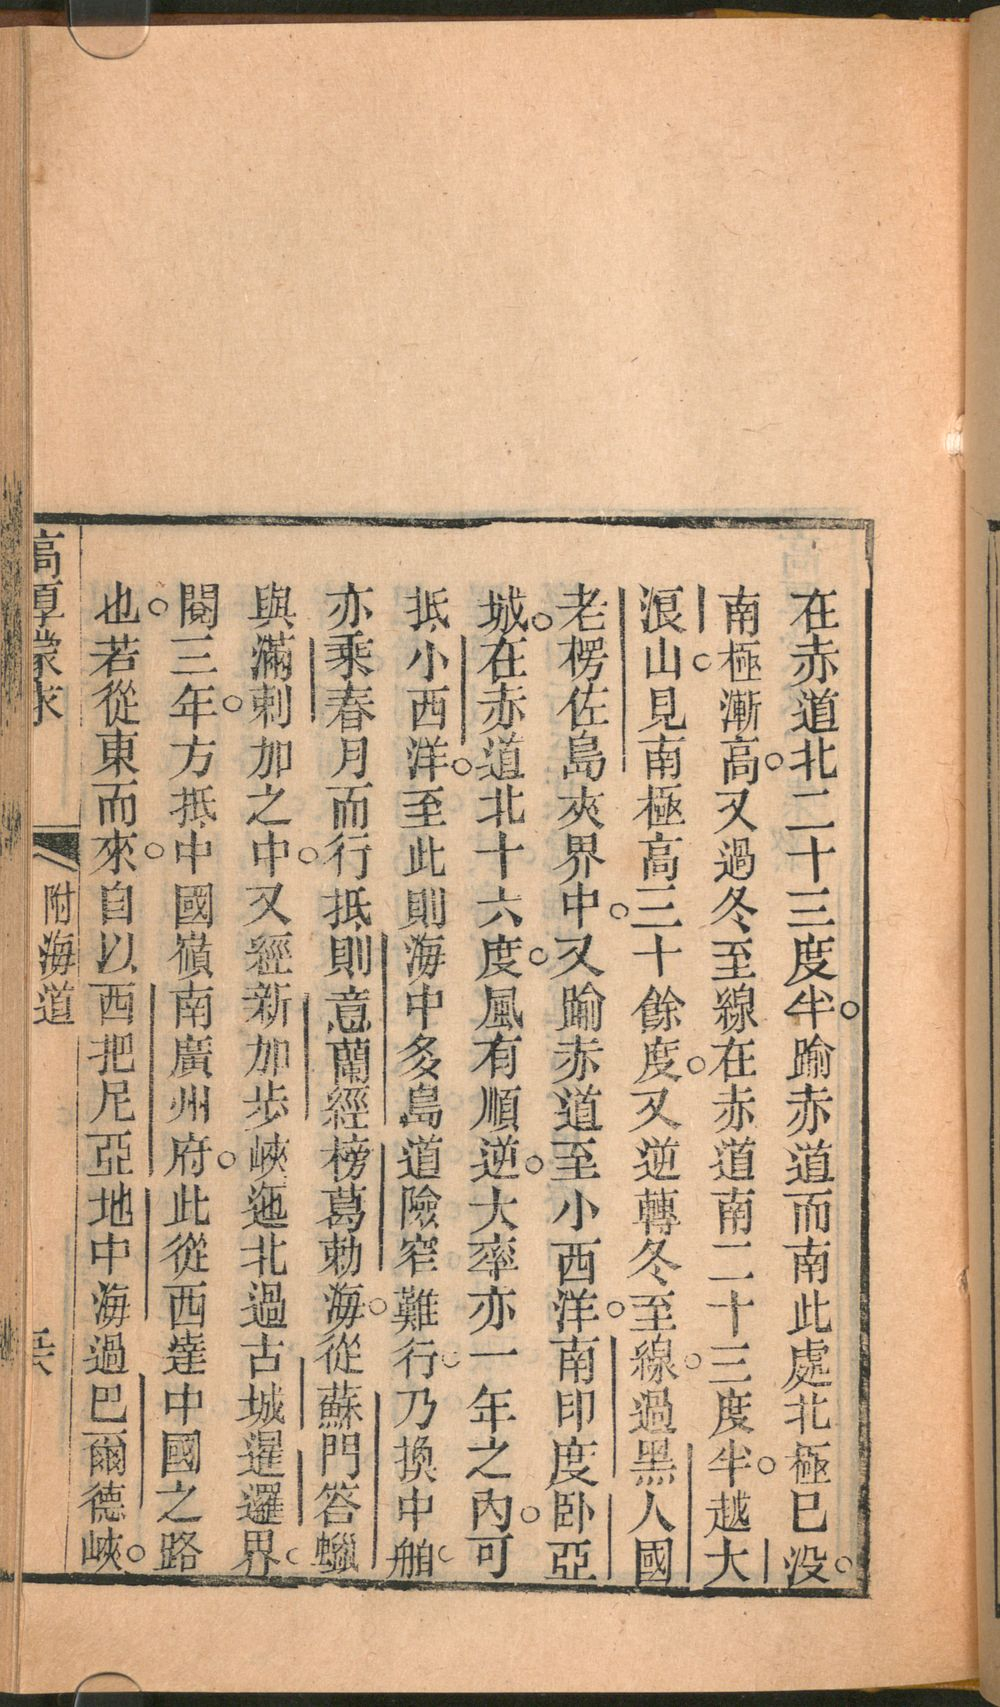 在赤道北二十三度半。踰赤道而南此處北極已没。
南極漸高。又過冬至線在赤道南二十三度半。越大
浪山。見南極高三十餘度。又逆轉冬至線。過黑人國
老楞佐島夾界中。又踰赤道至小西洋。南印度卧亞
城。在赤道北十六度。風有順逆。大率亦一年之內。可
抵小西洋。至此則海中多島道險窄難行。乃換中舶。
亦乘春月而行抵則意蘭經榜葛勅海。從蘇門答蠟
與滿剌加之中。又經新加步峽迤北過古城暹邏界。
閱三年。方抵中國嶺南廣州府。此從西達中國之路
也。若從東而來。自以西把尼亞地中海過巴爾德峽。
高厚蒙求
附海道